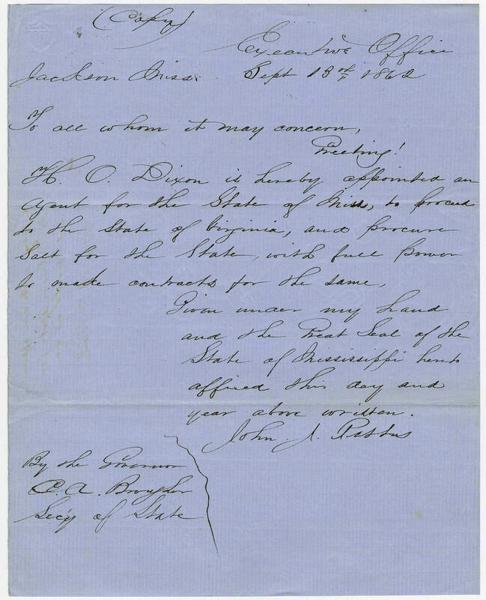 (Copy)
Executive Office
Jackson Miss. Sept 13th 1862
To all whom it may concern,
Greeting!
H. O. Dixon is hereby appointed an
Agent for the State of Miss, to proceed
to the State of Virginia, and procure
Salt for the State, with full power
to made contracts for the same,
Given under my hand
and the Great Seal of the
State of Mississippi hereto
affixed this day and
year above written.
John J. Pettus
By the Governor
C. A. Brougher
Secy of State